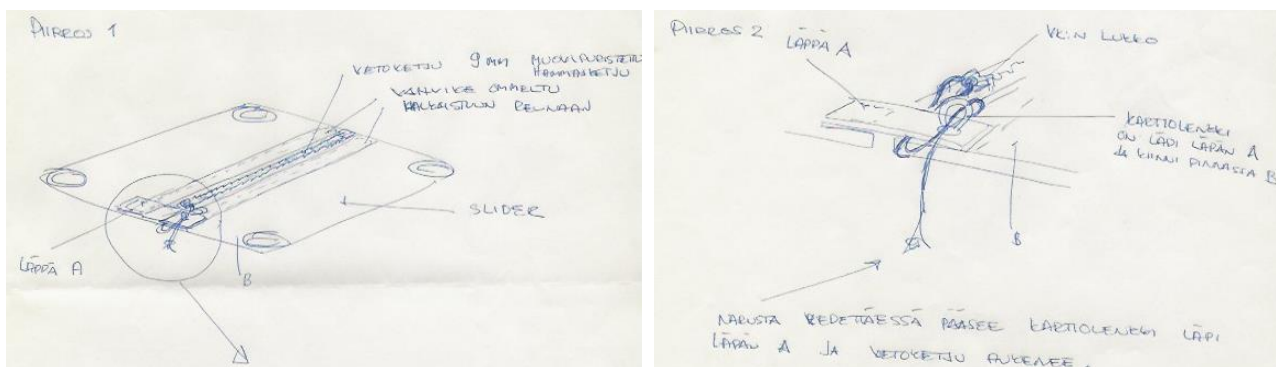 PIIRROS 1
VETOKETJU 9 MM MUOVIPURISTETTU
HAMMASKETJU
VAHVIKE OMMELTU
HALKAISTUUN REUNAAN
SLIDER
LÄPPÄ A
B
PIIRROS 2
LÄPPÄ A
VK:N LUKKO
KARTIOLENKKI
ON LÄPI LÄPÄN A
JA KIINNI PINNASSA B
B
NARUSTA VEDETTÄESSÄ PÄÄSEE KARTIOLENKKI LÄPI
LÄPÄN A JA VETOKETJU AUKENEE.